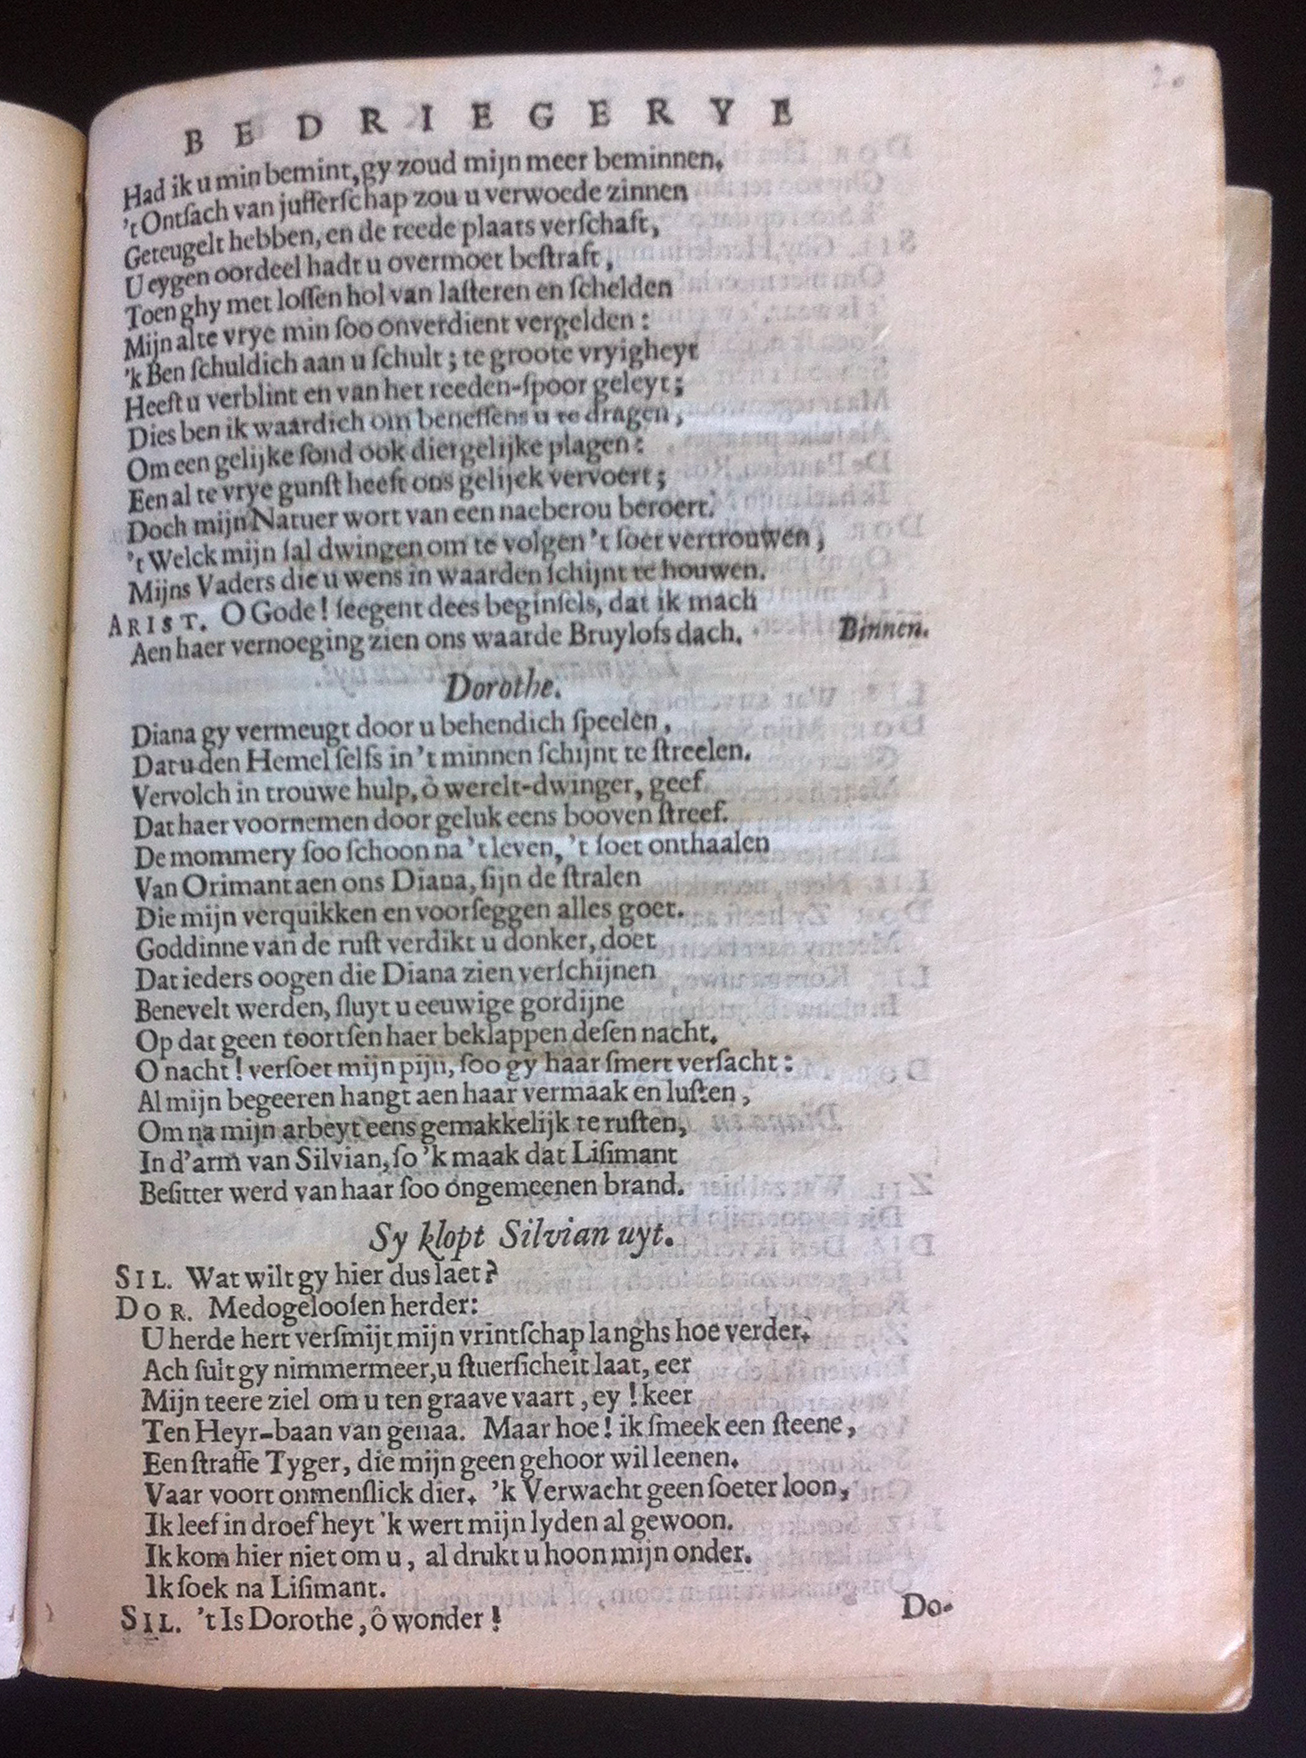 BEDRIEGERYE
Had ik u min bemint, gy zoud mijn meer beminnen.
't Ontſach van jufferſchap zou u verwoede zinnen
Geteugelt hebben, en de reede plaats verſchaft,
U eygen oordeel hadt u overmoet beſtraft,
Toen ghy met loſſen hol van laſteren en ſchelden
Mijn alte vrye min ſoo onverdient vergelden:
'k Ben ſchuldich aan u ſchult; te groote vryigheyt
Heeft u verblint en van het reeden-ſpoor geleyt;
Dies ben ik waardich om beneſſens u te dragen,
Om een gelijke ſond ook diergelijke plagen:
Een al te vrye gunſt heeft ons gelijck vervoert;
Doch mijn Natuer wort van een naeberou beroert.
't Welck mijn ſal dwingen om te volgen 't ſoet vertrouwen,
Mijns Vaders die u wens in waarden ſchijnt te houwen.
ARIST. O Gode! ſeegent dees beginſels, dat ik mach
Aen haer vernoeging zien ons waarde Bruylofs dach. Binnen.
Dorothe.
Diana gy vermeugt door u behendich ſpeelen,
Dat u den Hemel ſelfs in 't minnen ſchijnt te ſtreelen.
Vervolch in trouwe hulp, ò werelt-dwinger, geef
Dat haer voornemen door geluk eens booven ſtreef.
De mommery ſoo ſchoon na 't leven, 't ſoet onthaalen
Van Orimant aen ons Diana, ſijn de ſtralen
Die mijn verquikken en voorſeggen alles goet.
Goddinne van de ruſt verdikt u donker, doet
Dat ieders oogen die Diana zien verſchijnen
Benevelt werden, ſluyt u eeuwige gordijne
Op dat geen toortſen haer beklappen deſen nacht.
O nacht! verſoet mijn pijn, ſoo gy haar ſmert verſacht:
Al mijn begeeren hangt aen haar vermaak en luſten,
Om na mijn arbeyt eens gemakkelijk te ruſten,
In d'arm van Silvian, ſo 'k maak dat Liſimant
Beſitter werd van haar ſoo ongemeenen brand.
Sy klopt Silvian uyt.
SIL. Wat wilt gy hier dus laet?
DOR. Medogelooſen herder:
U herde hert verſmijt mijn vrintſchap langhs hoe verder.
Ach ſult gy nimmermeer, u ſtuerſicheit laat, eer
Mijn teere ziel om u ten graave vaart, ey! keer
Ten Heyr-baan van genaa. Maar hoe! ik ſmeek een ſteene,
Een ſtraffe Tyger, die mijn geen gehoor wil leenen.
Vaar voort onmenſlick dier. 'k Verwacht geen ſoeter loon,
Ik leef in droefheyt 'k wert mijn lyden al gewoon.
Ik kom hier niet om u, al drukt u hoon mijn onder.
Ik ſoek na Liſimant.
SIL. 't Is Dorothe, ô wonder!
Do-